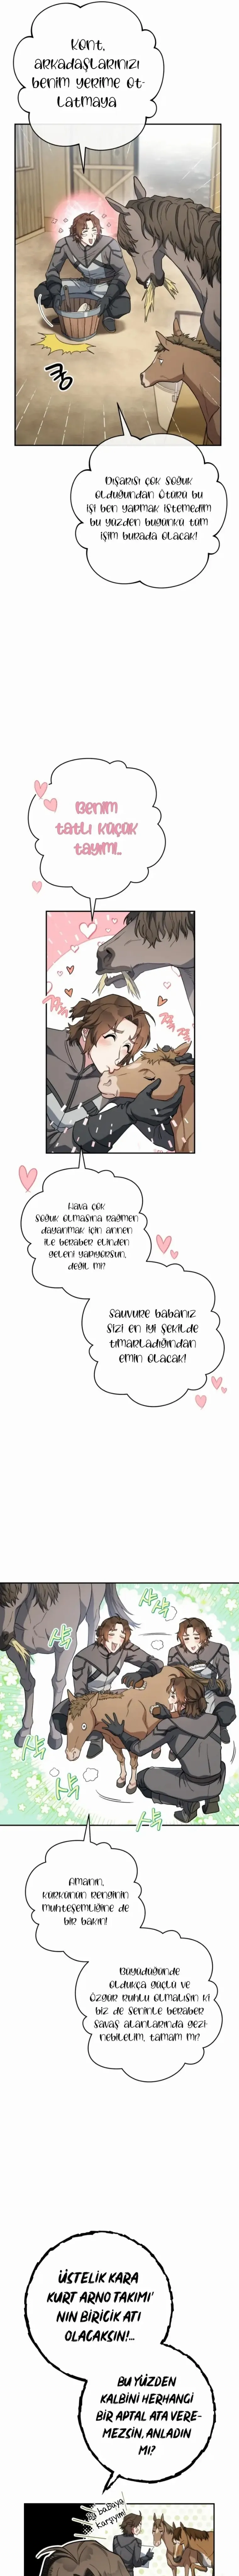 Kont,
arkadaşlarınızı
benim yerime ot-
latmaya
Dışarısı çok soğuk
olduğundan ötürü bu
işi ben yapmak istemedim
bu yüzden bugünkü tüm
işim burada olacak!
Benim
tatlı küçük
tayım..
Hava çok
soğuk olmasına rağmen
dayanmak için annen
ile beraber elinden
geleni yapıyorsun,
değil mi?
Sauvure babanız
sizi en iyi şekilde
tımarladığından
emin olacak!
Amanın,
kürkünün renginin
muhteşemliğine de
bir bakın!
Büyüdüğünde
oldukça güçlü ve
özgür ruhlu olmalısın ki
biz de seninle beraber
savaş alanlarında gezi-
nebilelim, tamam mı?
ÜSTELİK KARA
KURT ARNO TAKIMI'
NIN BİRİCİK ATI
OLACAKSIN!...
BU YÜZDEN
KALBİNİ HERHANGİ
BİR APTAL ATA VERE-
MEZSİN, ANLADIN
MI?
babaya
karşıyım!